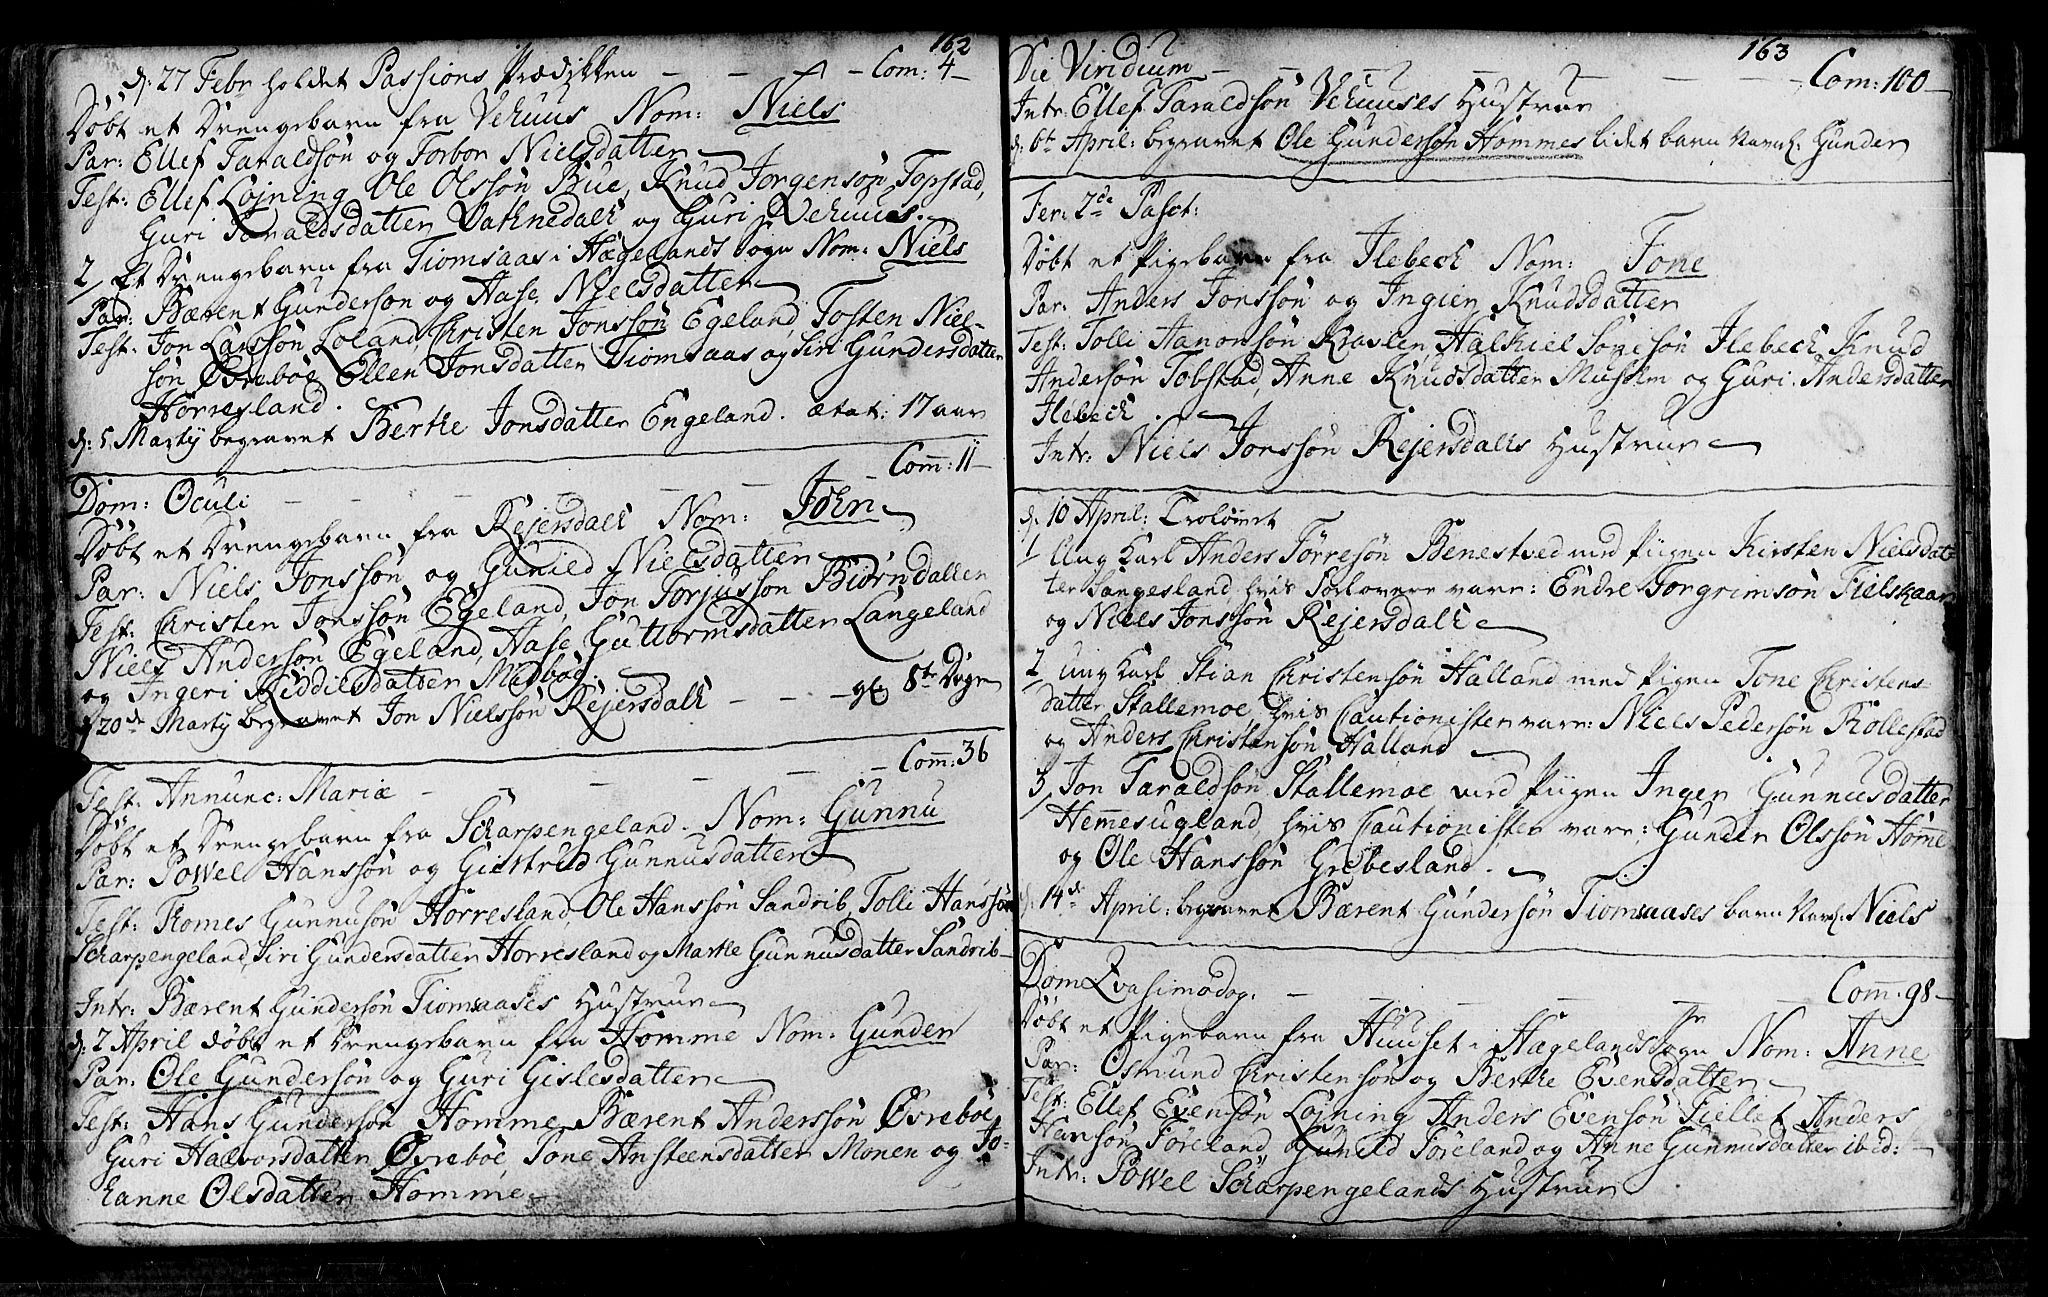 162
d: 27 Febr holdet Passions Prædikken - - - Com: 4 -
Døbt et Drengebarn fra Vehuus Nom: Niels
Par: Ellef Taraldsøn og Torbor Nielsdatter
Test: Ellef Løjning, Ole Olssøn Bue, Knud Jørgensøn Topstad,
Guri Taraldsdatter Vathnedalh og Guri Vehuus.
2, Et Drengebarn fra Tiomsaas i Hægelands Sogn Nom: Niels
Par: Bærent Gundersøn og Aase Nielsdatter
Test: Jon Larssøn Loland, Christen Jonssøn Egeland, Tosten Niel-
søn Øvrebøe Ellen Jonsdatter Tiomsaas og Siri Gundersdatter
Horresland.
d: 5 Martÿ begravet Berthe Jonsdatter Engeland. ætat: 17 aar
Com: 11 -
Dom: Oculi - - - - -
Døbt et Drengebarn fra Rejersdalh Nom: John
Par: Niels Jonssøn og Gunild Nielsdatter
Test: Christen Jonssøn Egeland, Jon Torjussøn Biørndallen
Niels Andersøn Egeland, Aase Guttormsdatter Langeland
og Ingeri Kiddilsdatter Midboe.
d 20de Martÿ begravet Jon Nielssøn Rejersdalh - - - gl 8te Dage
Com: 36
Fest: Annunc: Mariæ - - - - -
Døbt et Drengebarn fra Scharpengeland. Nom: Gunnu
Par: Powel Hanssøn og Giertrud Gunnusdatter
Test: Thomes Gunnusøn Horresland, Ole Hanssøn Sandrib, Tolli Hanssøn
Scharpengeland, Siri Gundersdatter Horresland og Marthe Gunnusdatter Sandrib
Intr: Bærent Gundersøn Tiomsaases Hustrue
d: 2 April døbt et Drengebarn fra Homme Nom: Gunder
Par: Ole Gundersøn og Guri Gislesdatter
Test: Hans Gundersøn Homme, Bærent Anderssøn Øvrebøe
Guri Halvorsdatter Øvrebøe, Tone Ansteensdatter Monen og Jo-
hanne Olsdatter Homme
163
Die Viridium - - - - - Com: 100 -
Intr: Ellef Taraldsøn Vehuuses Hustrue
d: 6t April: begravet Ole Gundersøn Hommes lidet barn Navnl: Gunder
Fer: 2de Pasct:
Døbt et Pigebarn fra Ilebech Nom: Tone
Par: Anders Jonssøn og Ingier Knudsdatter
Test: Tolli Aanonsøn Kraslen Halkiel Søresøn Ilebech Knud
Andersøn Tobstad, Anne Knudsdatter Mushom og Guri Andersdatter
Ilebech.
Intr: Niels Jonssøn Rejersdalhs Hustrue
d: 10 April: Trolovet
1 Ung Karl Anders Tørresøn Benestved med Pigen Kirsten Nielsdat-
ter Langesland hvis Forlovere vare: Endre Torgrimsøn Fielskaar
og Niels Jonssøn Rejersdalh
2, ung Karl Stian Christensøn Halland med Pigen Tone Christens-
datter Stallemoe hvis Cautionister vare: Niels Pedersøn Rollestad
og Anders Christensøn Halland
3, Jon Taraldsøn Stallemoe med Pigen Inger Gunnusdatter
Hemesugland, hvis Cautionister vare: Gunder Olssøn Home
og Ole Hanssøn Grebesland.
d: 14de April: begravet Bærent Gundersøn Tiomsaases barn Navnl: Niels
Dom Qvasimodog. - - - - Com: 98 -
Døbt et Pigebarn fra Huuset i Hægelandsogn Nom: Anne
Par: Osmund Christensøn og Berthe Evensdatter
Test: Ellef Evensøn Løjning Anders Evensøn Fiellet, Anders
Hansøn Føreland, Gunild Føreland og Anne Gunnusdatter ibid:
Intr: Powel Scharpengelands Hustrue